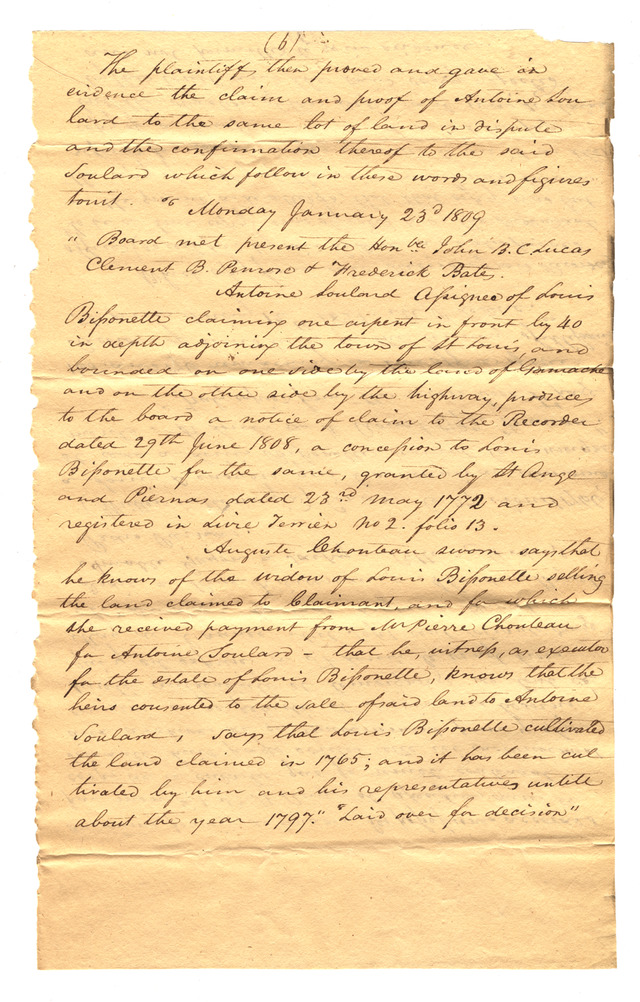 (6)
The plaintiffs then proved and gave in
evidence the claim and proof of Antoine Sou
lard to the same lot of land in dispute
and the confirmation thereof to the said
Soulard which follow in these words and figures
towit.
Monday January 23d 1809
" Board met present the Honble John B. C. Lucas
Clement B. Penrose & Frederick Bates.
Antoine Soulard Aſsignee of Louis
Biſsonette claiming one arpent in front by 40
in depth adjoining the town of St Louis, and
bounded on one side by the land of Gamache
and on the other side by the highway, produces
to the board a notice of claim to the Recorder
dated 29th June 1808, a conceſsion to Louis
Biſsonette for the same, granted by St Ange
and Piernas dated 23rd May 1772 and
registered in Livre Terrien No 2. folio 13.
Auguste Chouteau sworn says that
he knows of the widow of Louis Biſsonette selling
the land claimed to Claimant, and for which
she received payment from Mr Pierre Chouteau
for Antoine Soulard - that he, witneſs, as executor
for the estate of Louis Biſsonette, knows that the
heirs consented to the sale of said land to Antoine
Soulard, says that Louis Biſsonette cultivated
the land claimed in 1765; and it has been cul
tivated by him and his representatives untill
about the year 1797." "Laid over for decision"